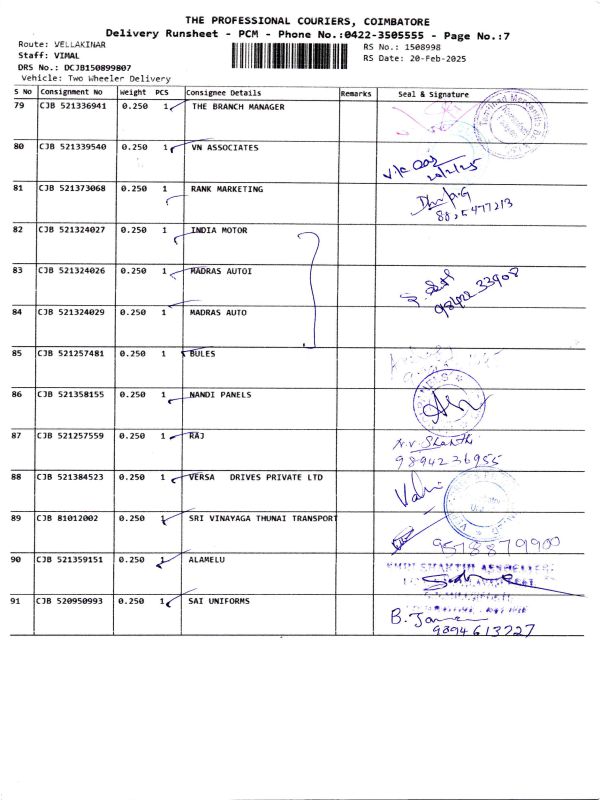 THE PROFESSIONAL COURIERS, COIMBATORE
Delivery Runsheet - PCM - Phone No.:0422-3505555 - Page No.:7
Route: VELLAKINAR
RS No.: 1508998
Staff: VIMAL
RS Date: 20-Feb-2025
DRS No.: DCJB150899807
Vehicle: Two Wheeler Delivery
S No Consignment No Weight PCS Consignee Details Remarks Seal & Signature
79 CJB 521336941 0.250 1 THE BRANCH MANAGER
80 CJB 521339540 0.250 1 VN ASSOCIATES
20/2/25
81 CJB 521373068 0.250 1 RANK MARKETING
8825477213
82 CJB 521324027 0.250 1 INDIA MOTOR
83 CJB 521324026 0.250 1 MADRAS AUTOI
98422 33908
84 CJB 521324029 0.250 1 MADRAS AUTO
85 CJB 521257481 0.250 1 BULES
86 CJB 521358155 0.250 1 NANDI PANELS
87 CJB 521257559 0.250 1 RAJ
N.V. Shanthi
9894236955
88 CJB 521384523 0.250 1 VERSA DRIVES PRIVATE LTD
89 CJB 81012002 0.250 1 SRI VINAYAGA THUNAI TRANSPORT
9578879900
90 CJB 521359151 0.250 1 ALAMELU
91 CJB 520950993 0.250 1 SAI UNIFORMS
9894613727